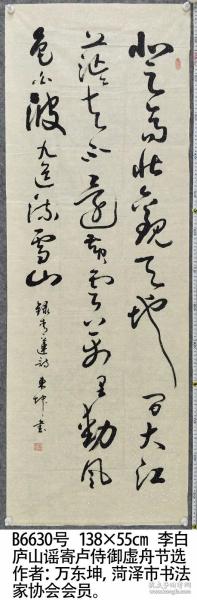 登高壮觀天地间大江
茫茫去不還黄雲万里動風
色白波九道流雪山
録青蓮詩 東坤書
B6630号 138×55cm 李白
庐山谣寄卢侍御虚舟节选
作者：万东坤，菏泽市书法
家协会会员。